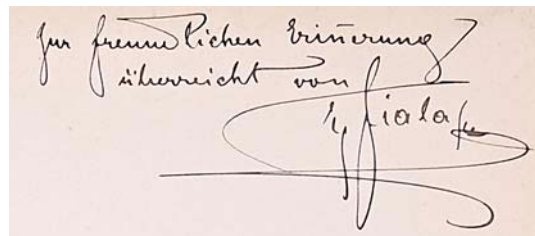 Zur freundlichen Erin̄erung
überreicht von
Fiala